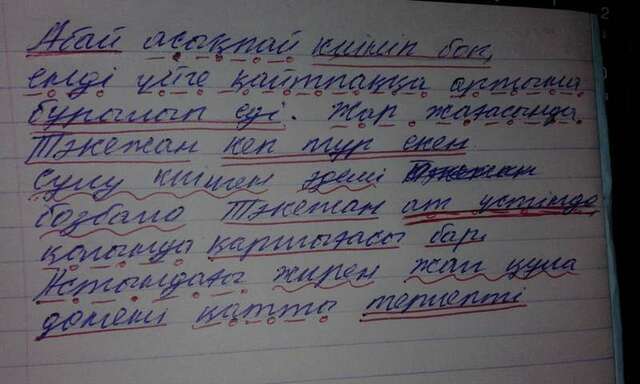 Абай асықпай киініп боп,
енді үйге қайтпаққа артына
бұрылып еді. Жар жағасында
Тәкежан кеп тұр екен
сулу киінген әдемі
бозбала Тәкежан ат үстінде
қолында қаршығасы бар.
Астындағы жирен жал құла
дөнені қатты терлепті